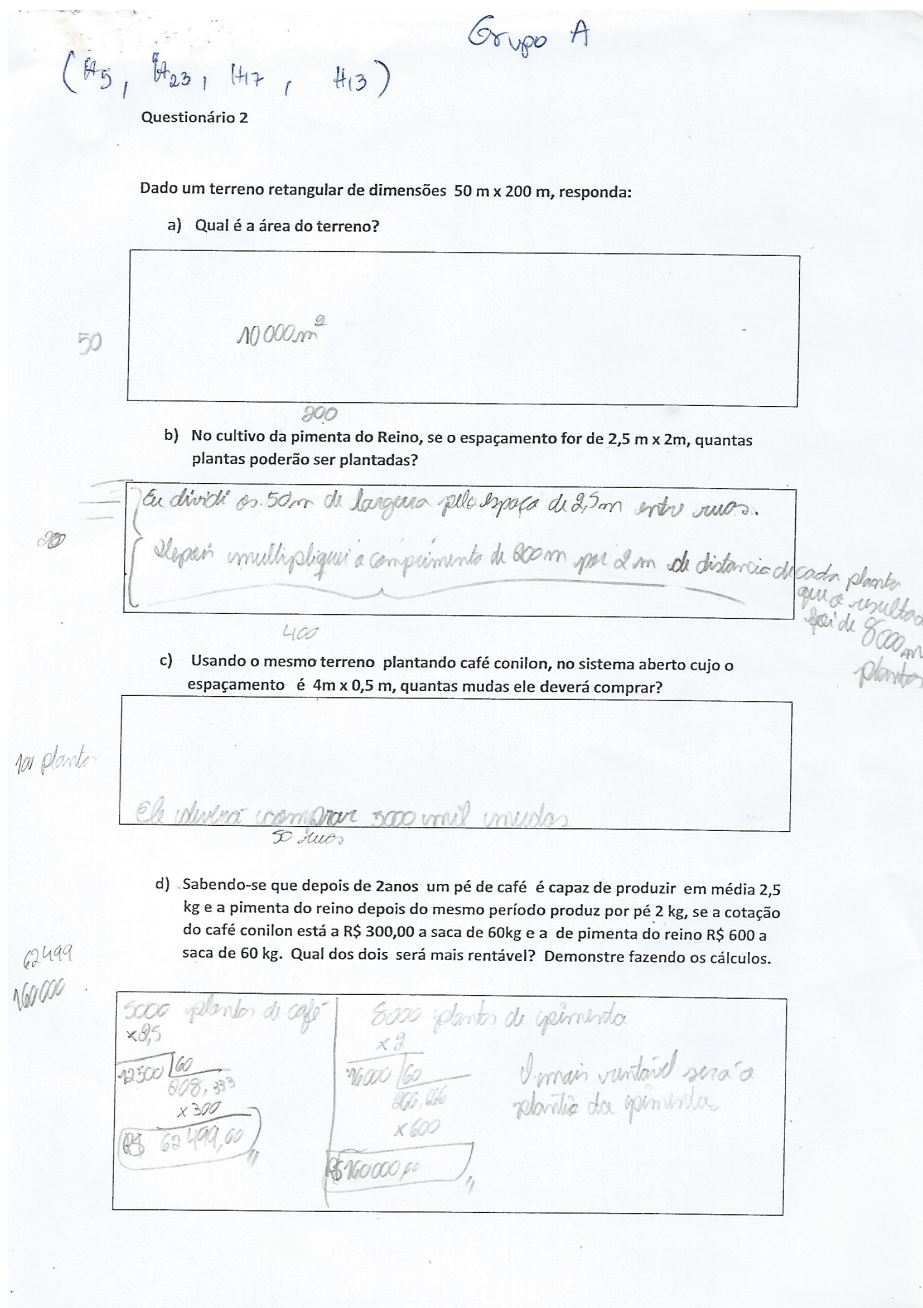 Grupo A
(H5, H23, H17, H13)
Questionário 2
Dado um terreno retangular de dimensões 50 m x 200 m, responda:
a) Qual é a área do terreno?
50
10 000 m²
200
b) No cultivo da pimenta do Reino, se o espaçamento for de 2,5 m x 2m, quantas
plantas poderão ser plantadas?
Eu dividi os 50m de largura pelo espaço de 2,5m entre ruas.
20
Depois multipliquei o comprimento de 200m por 2 m de distancia de cada planta
que o resultado
foi de 8000 m
plantas
400
c) Usando o mesmo terreno plantando café conilon, no sistema aberto cujo o
espaçamento é 4m x 0,5 m, quantas mudas ele deverá comprar?
100 plantas
Ele deverá comprar 5000 mil mudas
50 ruas
d) Sabendo-se que depois de 2anos um pé de café é capaz de produzir em média 2,5
kg e a pimenta do reino depois do mesmo período produz por pé 2 kg, se a cotação
do café conilon está a R$ 300,00 a saca de 60kg e a de pimenta do reino R$ 600 a
saca de 60 kg. Qual dos dois será mais rentável? Demonstre fazendo os cálculos.
62499
160000
5000 plantas de café
x2,5
12500 60
208,333
x 300
R$ 62499,00
8000 plantas de pimenta
x 2
16000 60
266,666
x 600
R$ 160000,00
O mais rentável será o
plantio da pimenta